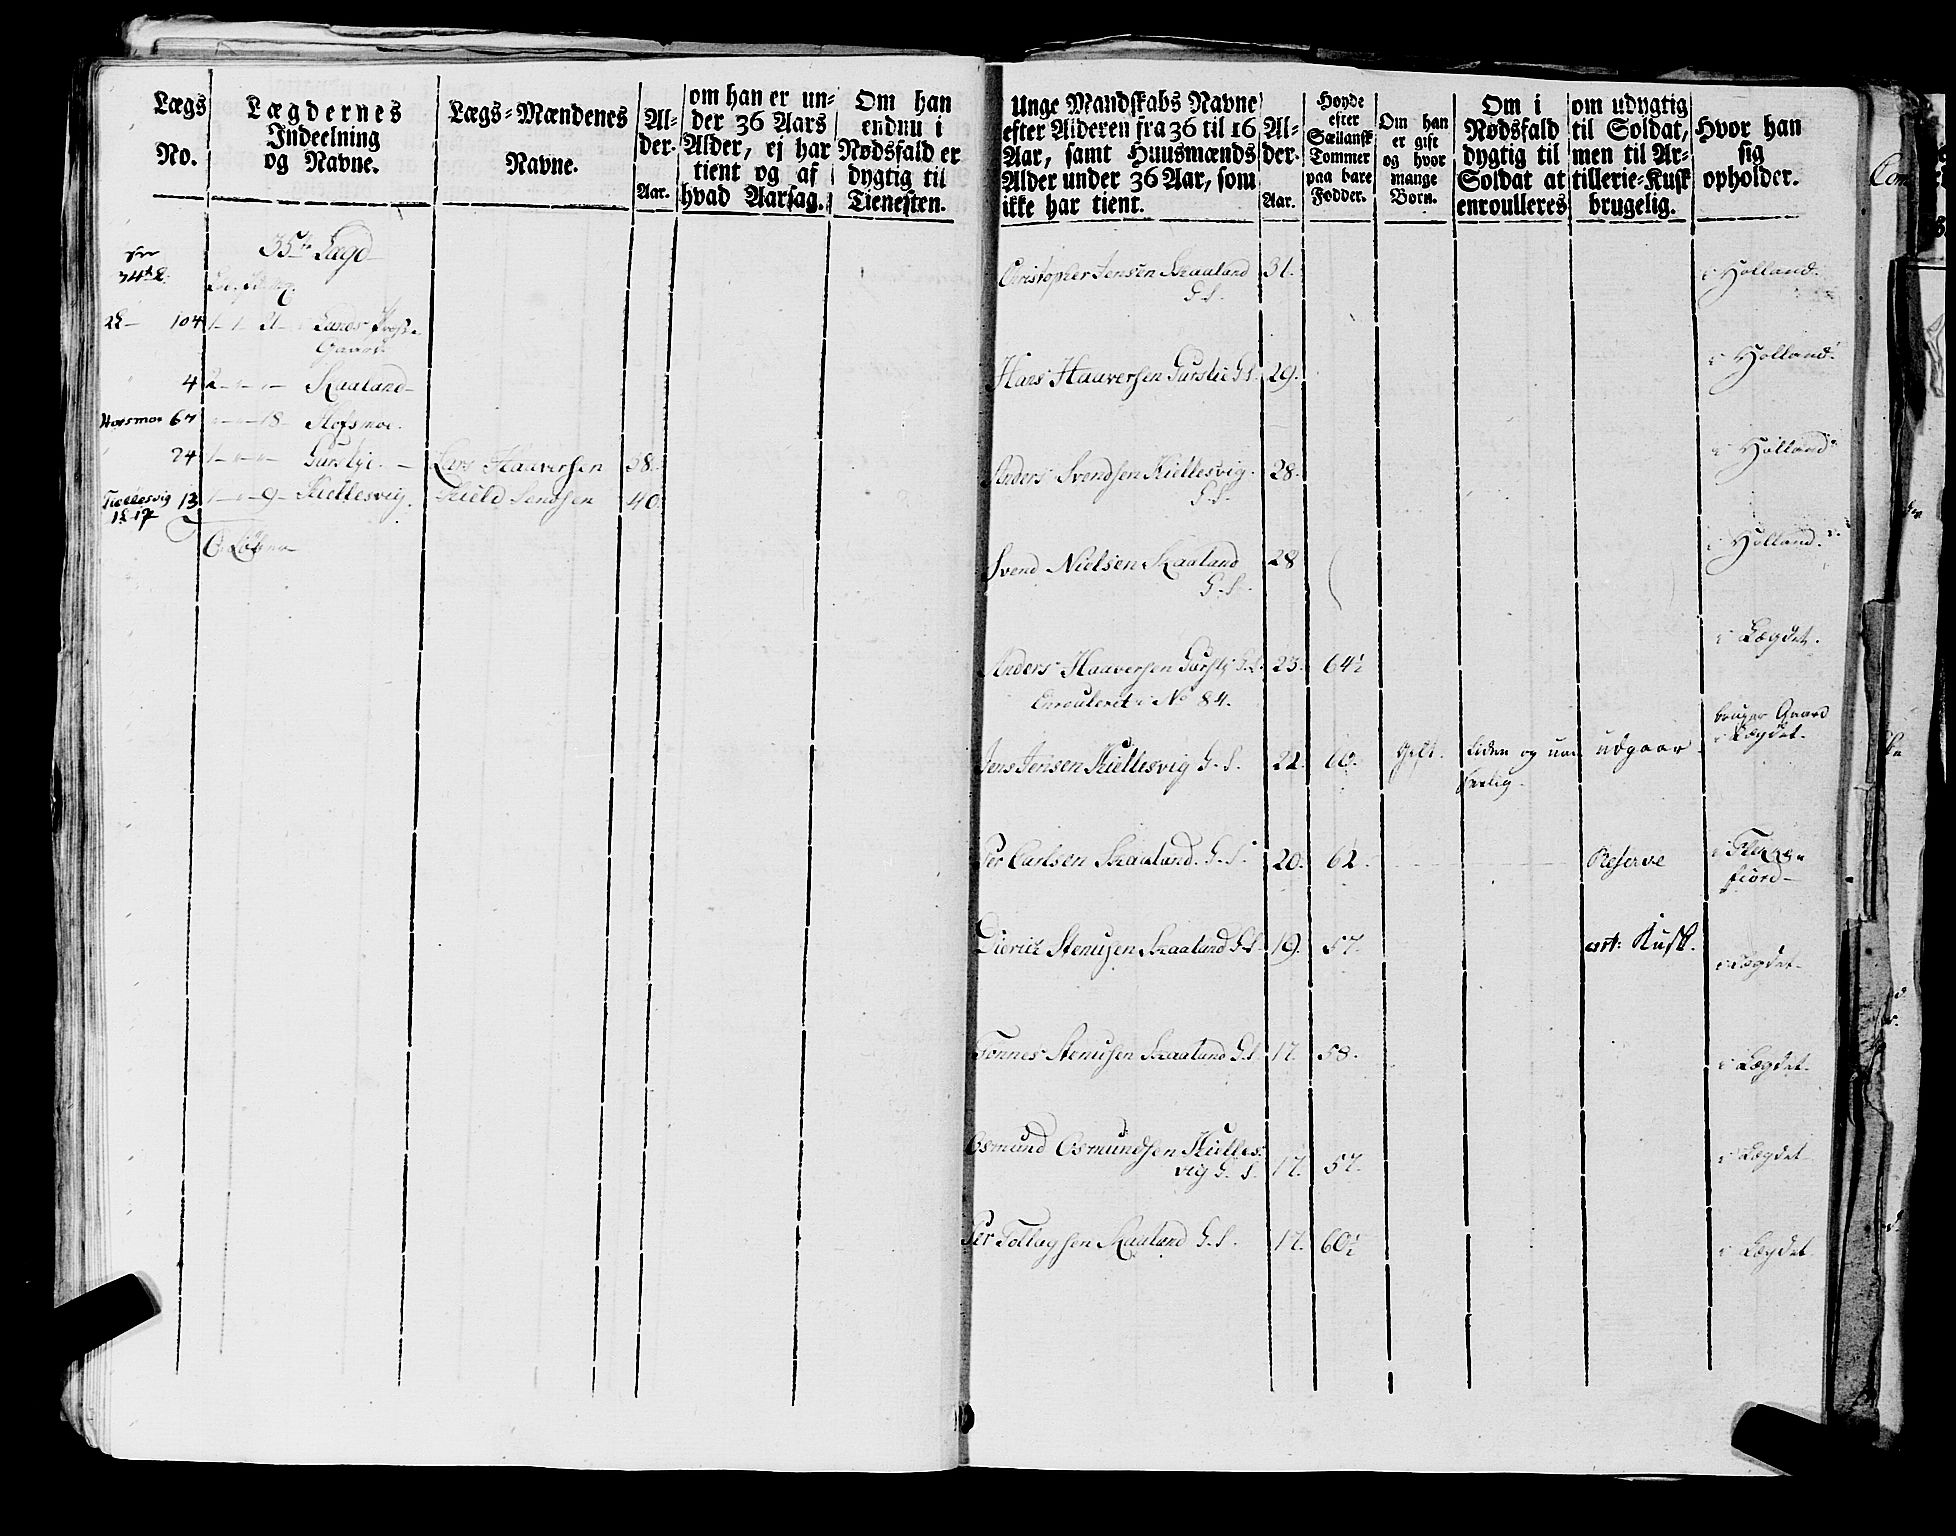 Lægs
No.
Lægdernes
Indeelning
og Navne.
Lægs-Mændenes
Navne.
Al-
der.
Aar.
om han er un-
der 36 Aars
Alder, ej har
tient og af
hvad Aarsag.
Om han
endnu i
Nødsfald er
dygtig til
Tienesten.
35te Lægd
104 1 - 1 - 21 - Lands
Gaard
4 2 - Skaaland
Hovsmoe 67 18 - Hofsmoe.
24 1 - Gurslye. - Lars Haaversen 38.
13 1 - 9 - Kiellesvig. Kield 40.
Unge Mandskabs Navne
efter Alderen fra 36 til 16
Aar, samt Huusmænds
Alder under 36 Aar, som
ikke har tient.
Al-
der.
Aar.
Høyde
efter
Sællansk
Tommer
paa bare
Fødder.
Om han
er gift
og hvor
mange
Børn.
Om i
Nødsfald
dygtig til
Soldat at
enroulleres
om udygtig
til Soldat,
men til Ar-
tillerie-Kusk
brugelig.
Hvor han
sig
opholder.
Christopher Jensen Skaaland 31. i Holland.
G. S.
Hans Haaversen Gurslie G S. 29. i Holland.
Anders Svendsen Kiellesvig. 28. i Holland
G. S.
Svend Nielsen Skaaland 28 i Holland.
G. S.
Anders Haaversen Gursli G. S. 23. 64½ i Lægdet.
Enroulerit i No 84.
bruger Gaard
i Lægdet.
Jens Jensen Kiellesvig G. S. 22. 60. Gift. liden og udgaar
Per Carlsen Skaaland. G. S. 20. 62. Reserve i
fiord
Dierich Stenusen Skaaland G. S. 19. 57. art: Kusk. i Lægdet
Tønnes Stenusen Skaaland G. S. 17. 58. i Lægdet.
Osmund Osmundsen Kielles-
vig G. S. 17. 57. i Lægdet
Per Tollagsen Skaaland G. S. 17. 60½ i Lægdet